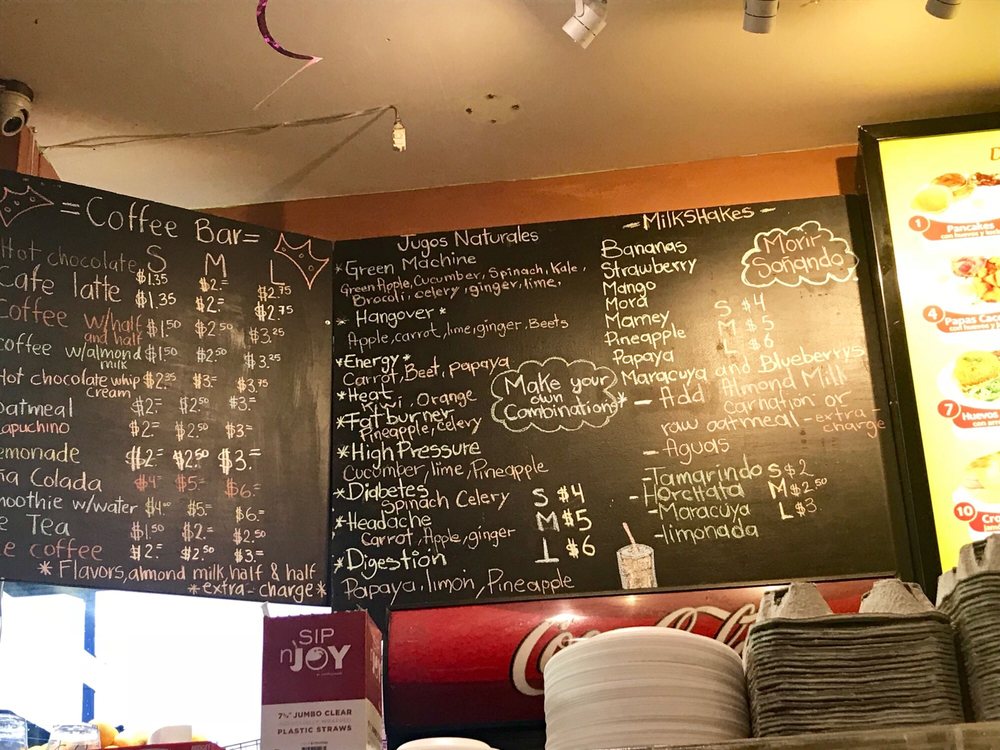 =Coffee Bar=
S M L
Hot chocolate $1.35 $2.= $2.75
Cafe latte $1.35 $2.= $2.75
Coffee w/half and half $1.50 $2.50 $3.25
coffee w/almond milk $1.50 $2.50 $3.25
Hot chocolate whip cream $2.25 $3.= $3.75
oatmeal $2.= $2.50 $3.=
capuchino $2.= $2.50 $3.=
emonade $2.= $2.50 $3.=
ña Colada $4.= $5.= $6.=
moothie w/water $4.= $5.= $6.=
e Tea $1.50 $2.= $2.50
e coffee $2.= $2.50 $3.=
* Flavors, almond milk, half & half
*extra-charge*
Jugos Naturales
*Green Machine
Green Apple, Cucumber, Spinach, Kale,
Brocoli, celery, ginger, lime,
* Hangover*
Apple, carrot, lime, ginger, Beets
*Energy*
Carrot, Beet, papaya
*Heat
Kiwi, Orange
*Fat burner
Pineapple, celery
*High Pressure
Cucumber, lime, Pineapple
*Diabetes
Spinach Celery
*Headache
Carrot, Apple, ginger
*Digestion
Papaya, limon, Pineapple
S $4
M $5
L $6
Make your
own
Combination*
-Milkshakes-
Bananas
Strawberry
Mango
Mora
Mamey
Pineapple
Papaya
Maracuya and Blueberrys
S $4
M $5
L $6
Morir
Soñando
- Add Almond Milk
Carnation or
raw oatmeal -extra-
charge
- Aguas
-Tamarindo S $2
-Horchata M $2.50
-Maracuya L $3
-limonada
1 Pancakes
con huevos
4 Papas Cac
con huevos y
7 Huevos
con arr
10 Cro
SIP
n' JOY
7¾" JUMBO CLEAR
PLASTIC STRAWS
Coca-Cola